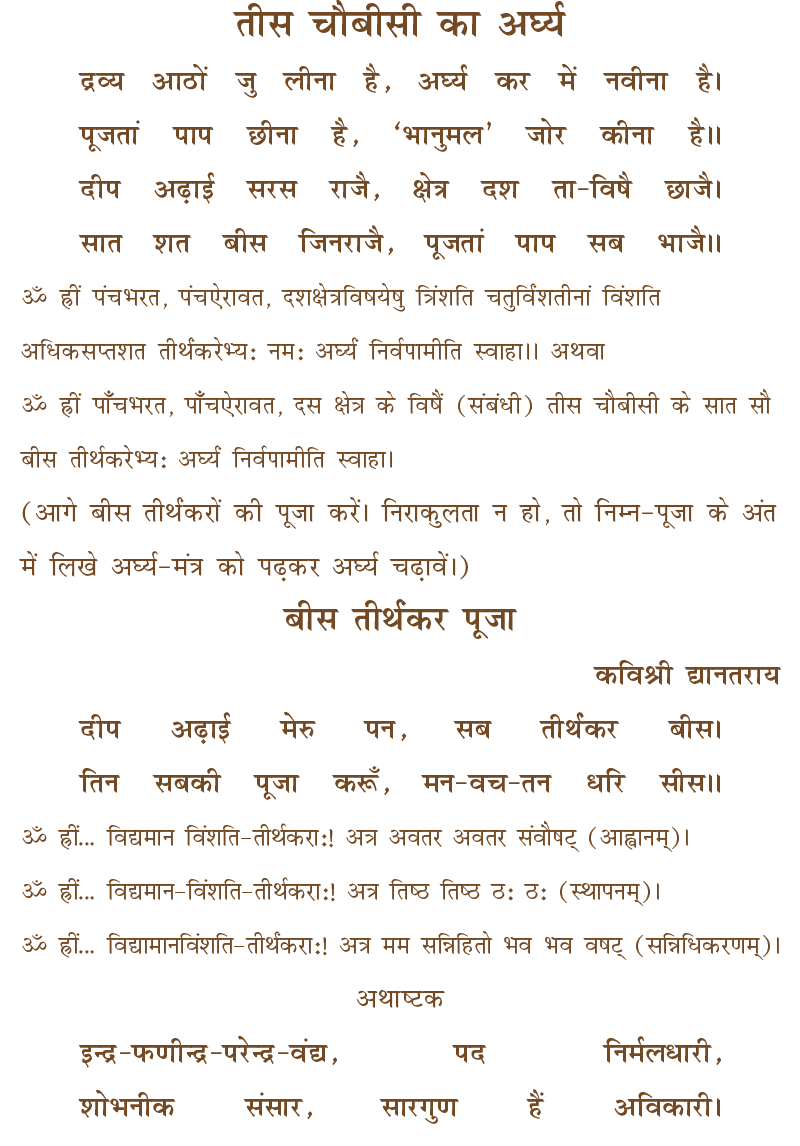 तीस चौबीसी का अर्घ्य
द्रव्य आठों जु लीना है, अर्घ्य कर में नवीना है।
पूजतां पाप छीना है, ‘भानुमल’ जोर कीना है।।
दीप अढ़ाई सरस राजै, क्षेत्र दश ता-विषै छाजै।
सात शत बीस जिनराजै, पूजतां पाप सब भाजै।।
ॐ ह्रीं पंचभरत, पंचऐरावत, दशक्षेत्रविषयेषु त्रिंशति चतुर्विंशतीनां विंशति
अधिकसप्तशत तीर्थंकरेभ्य: नम: अर्घ्यं निर्वपामीति स्वाहा।। अथवा
ॐ ह्रीं पाँचभरत, पाँचऐरावत, दस क्षेत्र के विषैं (संबंधी) तीस चौबीसी के सात सौ
बीस तीर्थकरेभ्य: अर्घ्यं निर्वपामीति स्वाहा।
(आगे बीस तीर्थंकरों की पूजा करें। निराकुलता न हो, तो निम्न-पूजा के अंत
में लिखे अर्घ्य-मंत्र को पढ़कर अर्घ्य चढ़ावें।)
बीस तीर्थंकर पूजा
कविश्री द्यानतराय
दीप अढ़ाई मेरु पन, सब तीर्थंकर बीस।
तिन सबकी पूजा करूँ, मन-वच-तन धरि सीस।।
ॐ ह्रीं... विद्यमान विंशति-तीर्थकरा:! अत्र अवतर अवतर संवौषट् (आह्वानम्)।
ॐ ह्रीं... विद्यमान-विंशति-तीर्थकरा:! अत्र तिष्ठ तिष्ठ ठ: ठ: (स्थापनम्)।
ॐ ह्रीं... विद्यामानविंशति-तीर्थंकरा:! अत्र मम सन्निहितो भव भव वषट् (सन्निधिकरणम्)।
अथाष्टक
इन्द्र-फणीन्द्र-परेन्द्र-वंद्य, पद निर्मलधारी,
शोभनीक संसार, सारगुण हैं अविकारी।